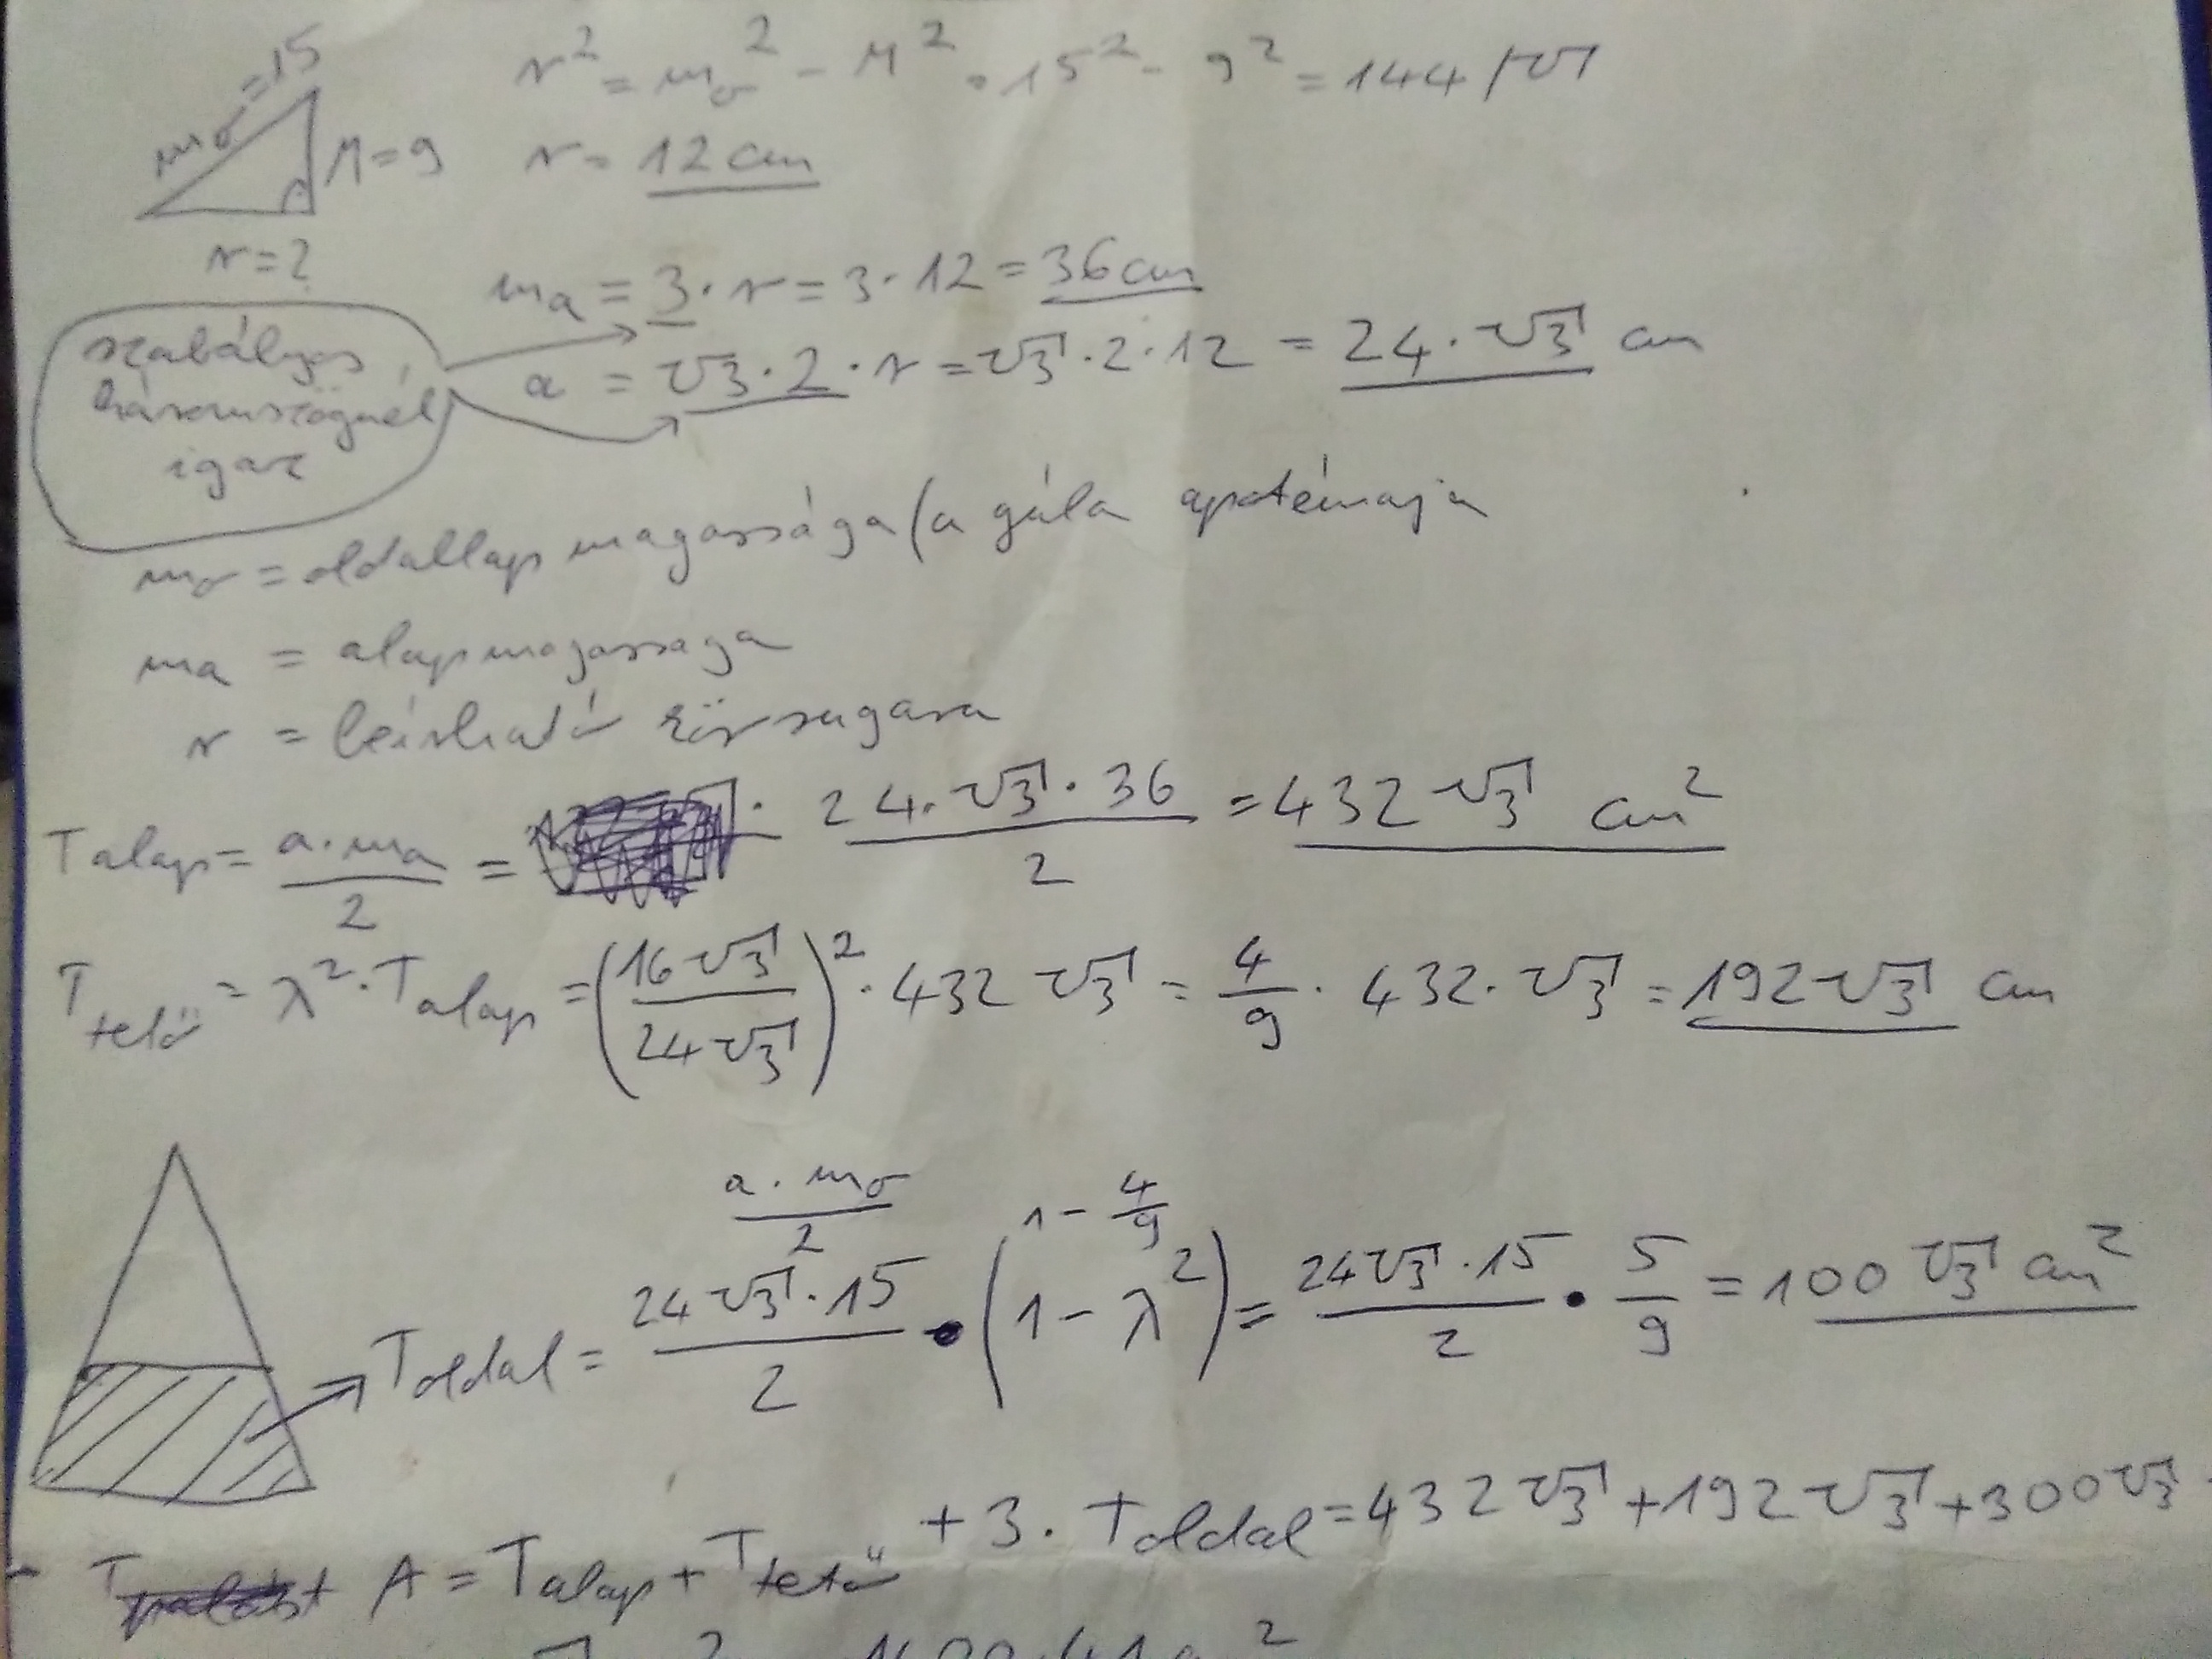 m₀=15
r² = m₀² - M² = 15² - 9² = 144 /√
M=9
r = 12 cm
r=?
mₐ = 3·r = 3·12 = 36 cm
szabályos
háromszögnél
igaz
a = √3·2·r = √3·2·12 = 24·√3 cm
m₀ = oldallap magassága (a gúla apotémája
ma = alapmagassága
r = beírható kör sugara
Talap = a·ma/2 = 24·√3·36/2 = 432√3 cm²
Ttető = λ²·Talap = (16√3/24√3)²·432√3 = 4/9·432·√3 = 192√3 cm
a·m₀/2
1 - 4/9
Toldal = 24√3·15/2 · (1-λ²) = 24√3·15/2 · 5/9 = 100√3 cm²
A = Talap + Ttető + 3·Toldal = 432√3 + 192√3 + 300√3